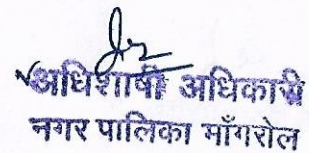 अधिशाषी अधिकारी
नगर पालिका माँगरोल